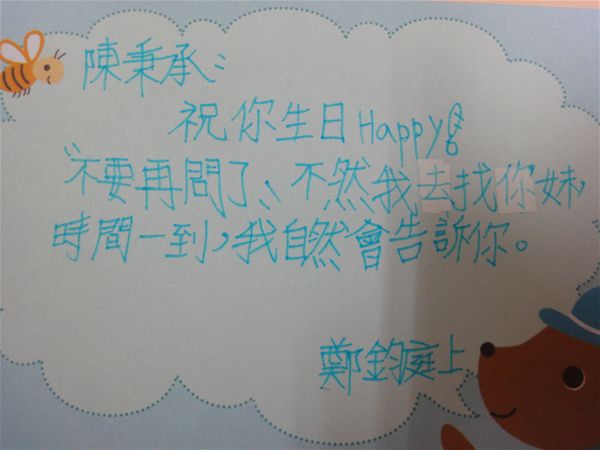 陳秉承：
祝你生日Happy!
"不要再問了、不然我去找你妹,
時間一到,我自然會告訴你。
鄭鈞庭上